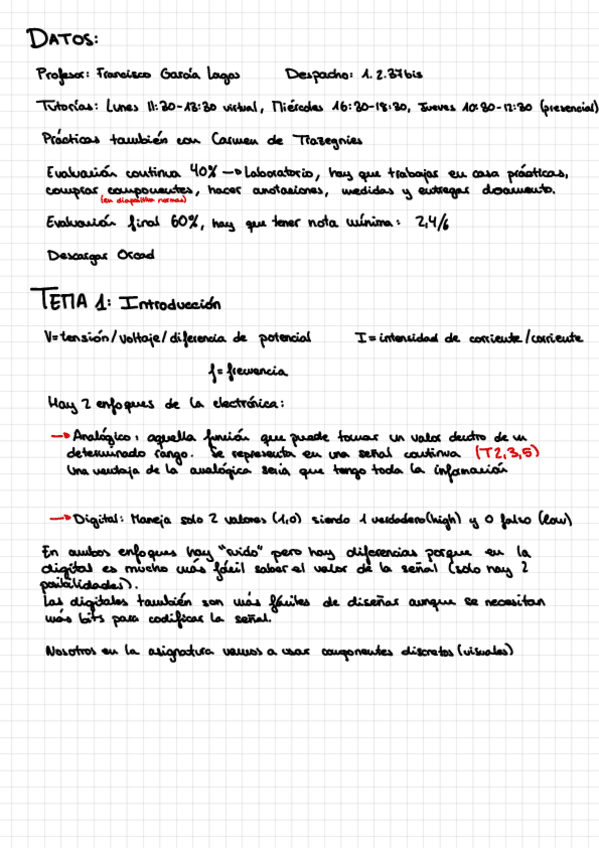 DATOS:
Profesor: Francisco García Lagos Despacho: 1.2.37bis
Tutorías: Lunes 11:30-13:30 virtual, Miércoles 16:30-18:30, Jueves 10:30-12:30 (presencial)
Prácticas también con Carmen de Trazegnies
Evaluación continua 40% → Laboratorio, hay que trabajar en casa prácticas,
comprar componentes, hacer anotaciones, medidas y entregar documento.
(en diapositiva normas)
Evaluación final 60%, hay que tener nota mínima: 2,4/6
Descargar Orcad
TEMA 1: Introducción
V=tensión/voltaje/diferencia de potencial I=intensidad de corriente/corriente
f=frecuencia
Hay 2 enfoques de la electrónica:
→ Analógico: aquella función que puede tomar un valor dentro de un
determinado rango. Se representa en una señal continua (T2,3,5)
Una ventaja de la analógica seria que tengo toda la información
→ Digital: Maneja solo 2 valores (1,0) siendo 1 verdadero(high) y 0 falso (low)
En ambos enfoques hay "ruido" pero hay diferencias porque en la
digital es mucho más fácil saber el valor de la señal (solo hay 2
posibilidades).
Las digitales también son más fáciles de diseñar aunque se necesitan
más bits para codificar la señal.
Nosotros en la asignatura vamos a usar componentes discretos (visuales)